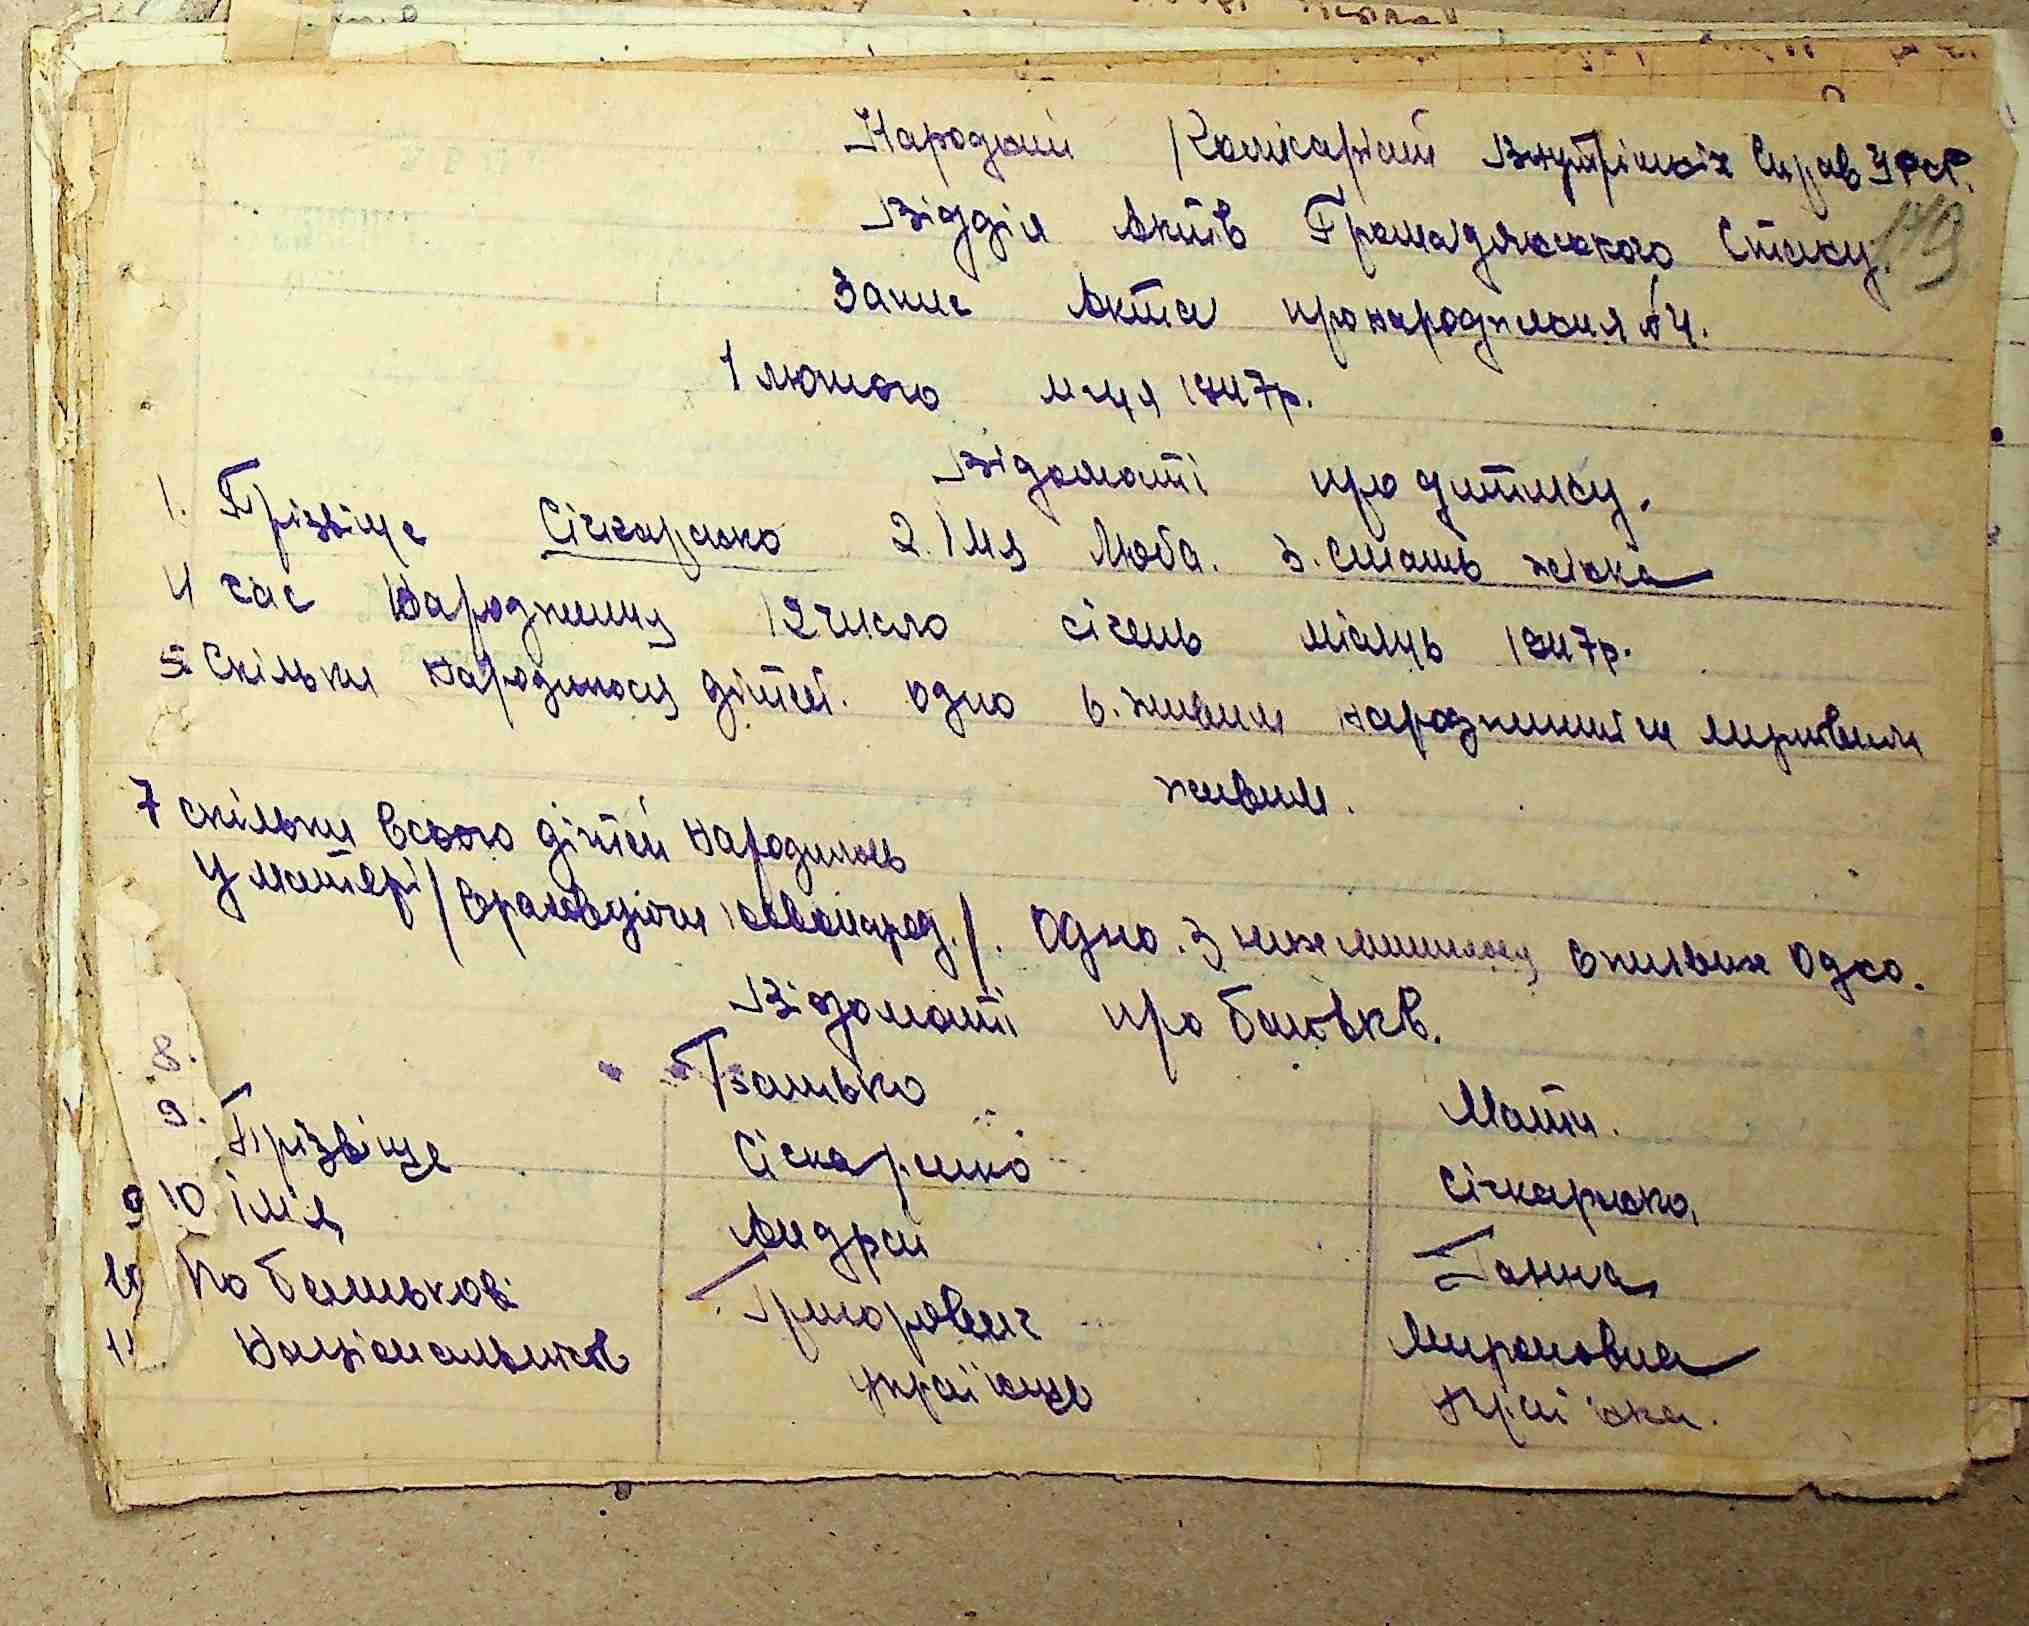 Народний Комісаріат Внутрішніх Справ УРСР.
Відділ Актів Громадянського Стану.
Запис Акта про народження №4.
1 лютого м-ця 1947р.
Відомості про дитину.
1. Прізвіще Січкаренко 2. Імя Люба. 3. стать жінка
4 час народження 12 число січень місяць 1947р.
5. Скільки народилося дітей. одно 6. живим народжений чи мертвим
живим.
7 скільки всього дітей народилось
у матері /враховуючи новонарод./. Одно. З них лишилося в живих одно.
Відомості про батьків.
8. Батько Мати.
9. Прізвіще Сіскаренко Січкаренко,
9 10 ім'я Андрій Ганна
10 По батькові Григорович Мироновна
11 Національність українець Українка.